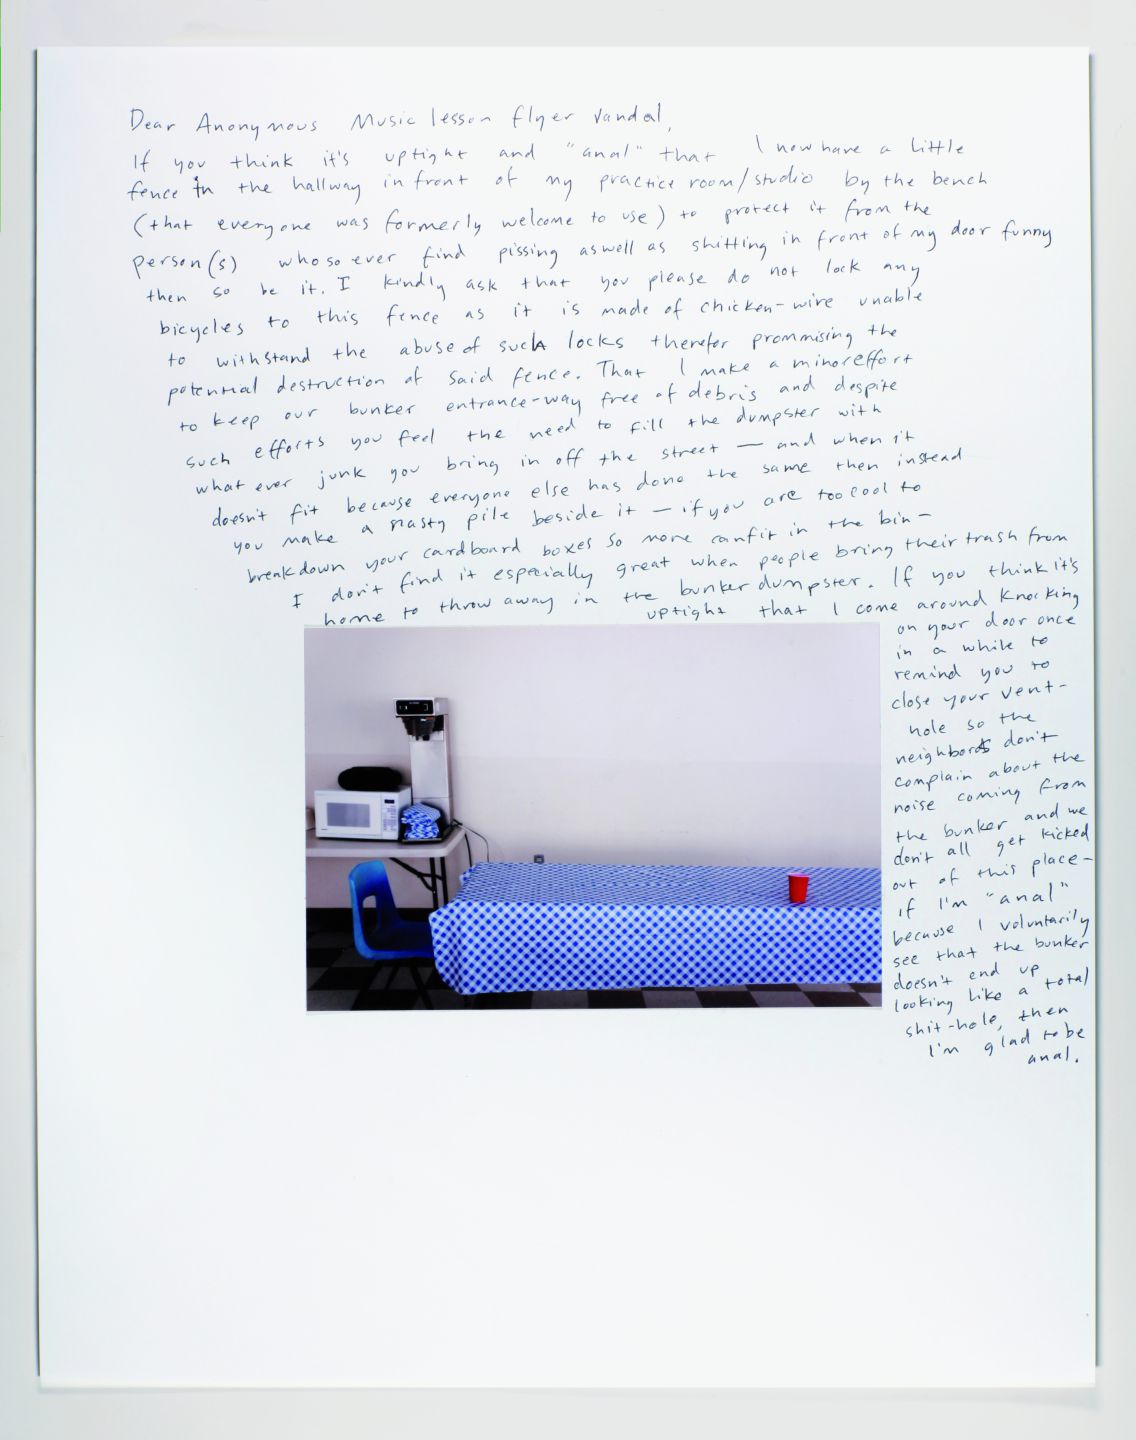 Dear Anonymous Music lesson flyer vandal,
If you think it's uptight and "anal" that I now have a little
fence in the hallway in front of my practice room/studio by the bench
(that everyone was formerly welcome to use) to protect it from the
person(s) who so ever find pissing aswell as shitting in front of my door funny
then so be it. I kindly ask that you please do not lock any
bicycles to this fence as it is made of chicken-wire unable
to withstand the abuse of such locks therefor prommising the
potential destruction of said fence. That I make a minor effort
to keep our bunker entrance-way free of debris and despite
such efforts you feel the need to fill the dumpster with
what ever junk you bring in off the street — and when it
doesn't fit because everyone else has done the same then instead
you make a nasty pile beside it — if you are too cool to
breakdown your cardboard boxes so more can fit in the bin —
I don't find it especially great when people bring their trash from
home to throw away in the bunker dumpster. If you think it's
uptight that I come around knocking
on your door once
in a while to
remind you to
close your vent-
hole so the
neighbors don't
complain about the
noise coming from
the bunker and we
don't all get kicked
out of this place —
if I'm "anal"
because I voluntarily
see that the bunker
doesn't end up
looking like a total
shit-hole, then
I'm glad to be
anal.